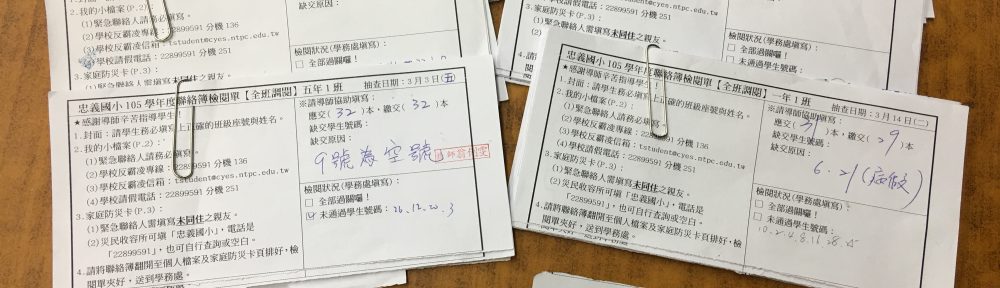 (1)緊急聯絡人請務必填寫。
(2)學校反霸凌專線:22899591 分機 136
(3)學校反霸凌信箱:tstudent@cyes.ntpc.edu.tw
(4)學校請假電話:22899591 分機 251
3.家庭防災卡(P.3):
(1)緊急聯絡人需填寫未同住之親友。
檢閱狀況(學務處填寫):
□ 全部過關囉!
2.我的小檔案(P.2):
(1)緊急聯絡人請務必填寫。
(2)學校反霸凌專線:22899591 分機 136
(3)學校反霸凌信箱:tstudent@cyes.ntpc.edu.tw
(4)學校請假電話:22899591 分機 251
3.家庭防災卡(P.3):
檢閱狀況(學務處填寫):
□ 全部過關囉!
□ 未通過學生號碼:
忠義國小 105 學年度聯絡簿檢閱單【全班調閱】五年 1 班 抽查日期:3月3日(五)
★感謝導師辛苦指導學生!
1.封面:請學生務必填寫上正確的班級座號與姓名。
2.我的小檔案(P.2):
(1)緊急聯絡人請務必填寫。
(2)學校反霸凌專線:22899591 分機 136
(3)學校反霸凌信箱:tstudent@cyes.ntpc.edu.tw
(4)學校請假電話:22899591 分機 251
3.家庭防災卡(P.3):
(1)緊急聯絡人需填寫未同住之親友。
(2)災民收容所可填「忠義國小」,電話是
「22899591」,也可自行查詢或空白。
4.請將聯絡簿翻開至個人檔案及家庭防災卡頁排好,檢
閱單夾好,送到學務處。
※請導師協助填寫:
應交(32)本,繳交(32)本
缺交學生號碼:
缺交原因:
9號為空號
檢閱狀況(學務處填寫):
□ 全部過關囉!
☑ 未通過學生號碼:26.12.20.3
忠義國小 105 學年度聯絡簿檢閱單【全班調閱】一年 1 班 抽查日期:3月14日(二)
★感謝導師辛苦指導學生!
1.封面:請學生務必填寫上正確的班級座號與姓名。
2.我的小檔案(P.2):
(1)緊急聯絡人請務必填寫。
(2)學校反霸凌專線:22899591 分機 136
(3)學校反霸凌信箱:tstudent@cyes.ntpc.edu.tw
(4)學校請假電話:22899591 分機 251
3.家庭防災卡(P.3):
(1)緊急聯絡人需填寫未同住之親友。
(2)災民收容所可填「忠義國小」,電話是
「22899591」,也可自行查詢或空白。
4.請將聯絡簿翻開至個人檔案及家庭防災卡頁排好,檢
閱單夾好,送到學務處。
※請導師協助填寫:
應交(31)本,繳交(29)本
缺交學生號碼:
缺交原因:
6.21(病假)
檢閱狀況(學務處填寫):
□ 全部過關囉!
□ 未通過學生號碼: